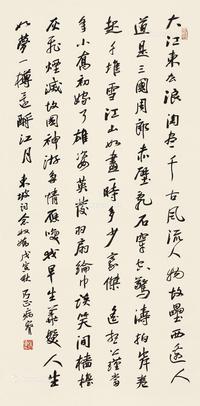 大江東去浪淘盡千古風流人物故壘西邊人
道是三國周郎赤壁亂石穿空驚濤拍岸卷
起千堆雪江山如畫一時多少豪傑遙想公瑾當
年小喬初嫁了雄姿英發羽扇綸巾談笑間檣櫓
灰飛煙滅故國神游多情應笑我早生華髮人生
如夢一樽還酹江月 東坡詞念奴嬌 戊寅秋